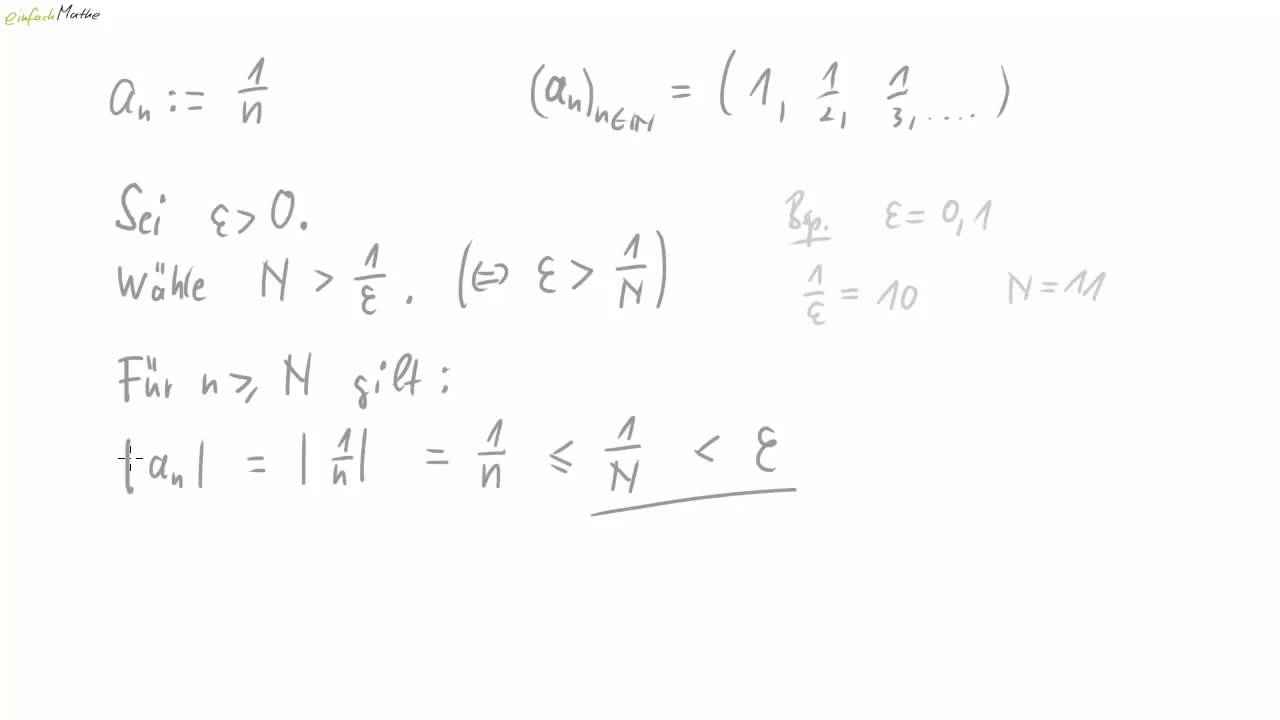 einfachMathe
aₙ := 1/n
(aₙ)ₙ∈ℕ = (1, 1/2, 1/3, ....)
Sei ε > 0.
Wähle N > 1/ε. (⇔ ε > 1/N)
Bsp. ε = 0,1
1/ε = 10 N = 11
Für n ≥ N gilt:
|aₙ| = |1/n| = 1/n ≤ 1/N < ε